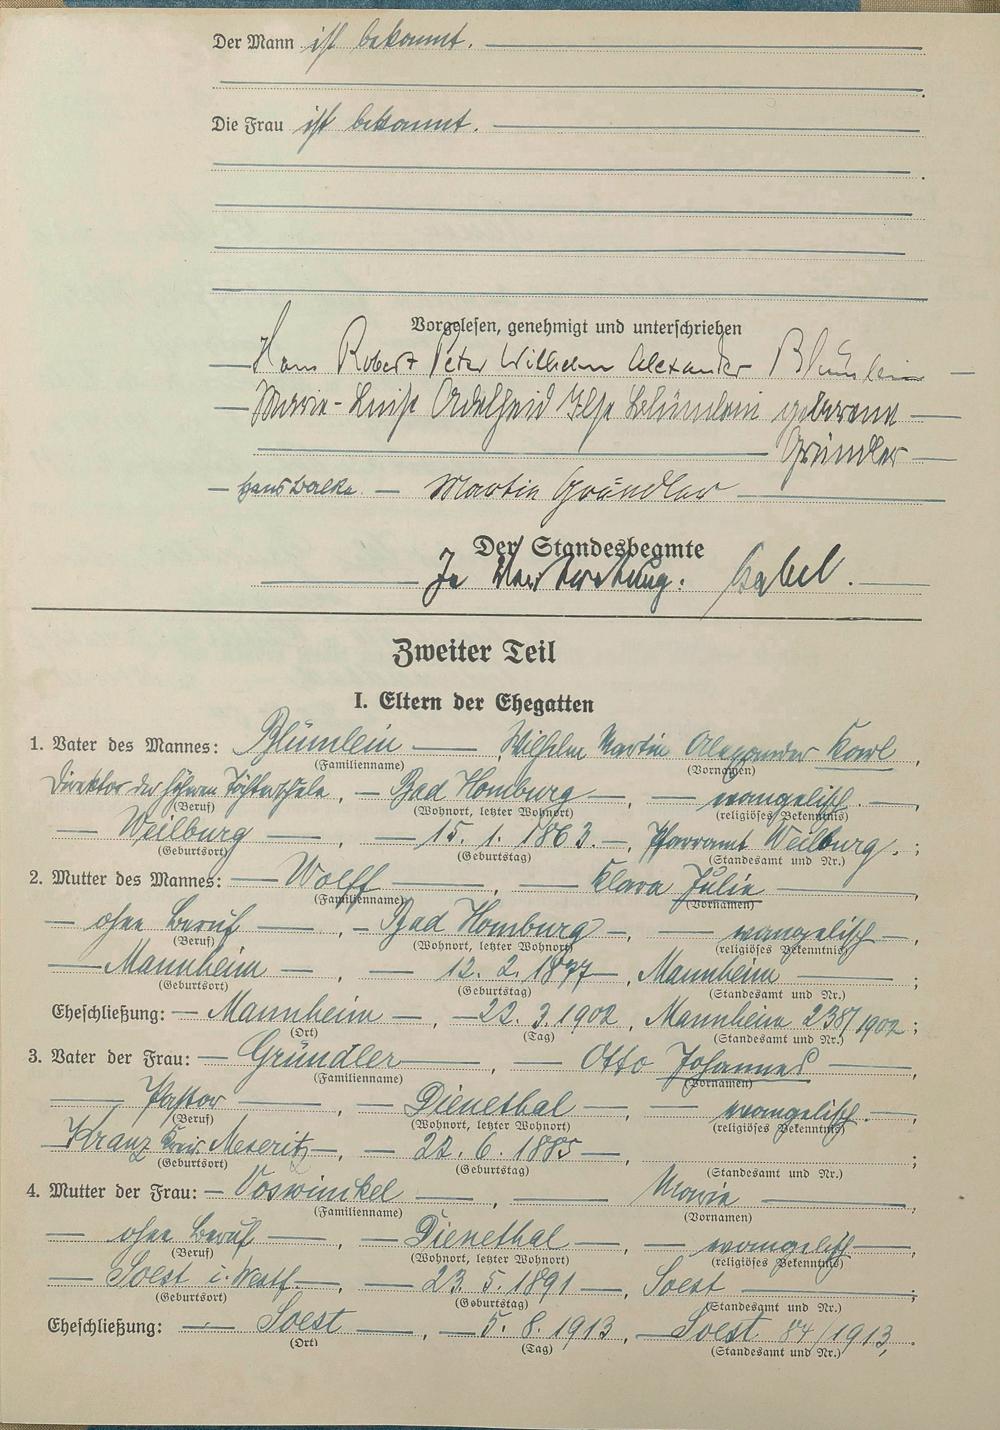 Der Mann ist bekannt.
Die Frau ist bekannt.
Vorgelesen, genehmigt und unterschrieben
Hans Robert Peter Wilhelm Alexander Blümlein
Marie-Luise Adelheid Ilse Blümlein geborene
Gründler
Hans Martin Gründler
Der Standesbeamte
In Vertretung: Gabel.
Zweiter Teil
I. Eltern der Ehegatten
1. Vater des Mannes: Blümlein, Wilhelm Martin Alexander Karl,
(Familienname) (Vornamen)
Direktor der höheren Töchterschule, Bad Homburg, evangelisch,
(Beruf) (Wohnort, letzter Wohnort) (religiöses Bekenntnis)
Weilburg, 15. 1. 1863., Pfarramt Weilburg.;
(Geburtsort) (Geburtstag) (Standesamt und Nr.)
2. Mutter des Mannes: Wolff, Klara Julie,
(Familienname) (Vornamen)
ohne Beruf, Bad Homburg, evangelisch,
(Beruf) (Wohnort, letzter Wohnort) (religiöses Bekenntnis)
Mannheim, 12. 2. 1877, Mannheim;
(Geburtsort) (Geburtstag) (Standesamt und Nr.)
Eheschließung: Mannheim, 22. 3. 1902, Mannheim 238/1902;
(Ort) (Tag) (Standesamt und Nr.)
3. Vater der Frau: Gründler, Otto Johannes,
(Familienname) (Vornamen)
Pastor, Dienethal, evangelisch,
(Beruf) (Wohnort, letzter Wohnort) (religiöses Bekenntnis)
Kranz Kreis Meseritz, 22. 6. 1885,;
(Geburtsort) (Geburtstag) (Standesamt und Nr.)
4. Mutter der Frau: Voswinkel, Maria,
(Familienname) (Vornamen)
ohne Beruf, Dienethal, evangelisch,
(Beruf) (Wohnort, letzter Wohnort) (religiöses Bekenntnis)
Soest i. Westf., 23. 5. 1891, Soest;
(Geburtsort) (Geburtstag) (Standesamt und Nr.)
Eheschließung: Soest, 5. 8. 1913, Soest 84/1913,
(Ort) (Tag) (Standesamt und Nr.)